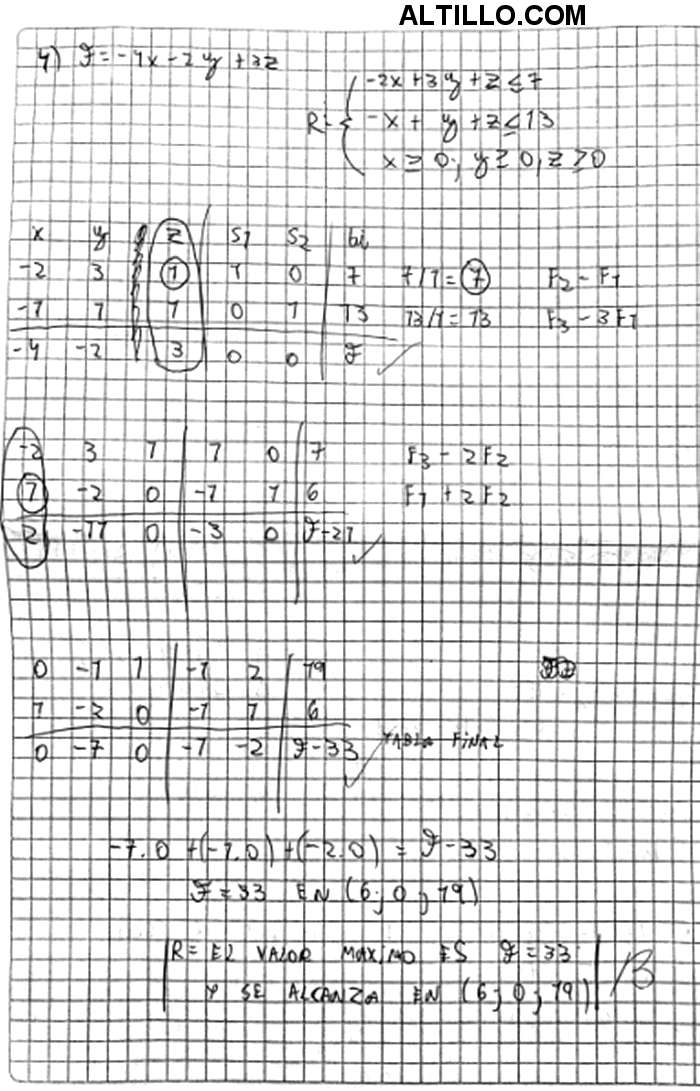 ALTILLO.COM
4) F = -4x - 2y + 3z
-2x + 3y + z ≤ 7
R = { -x + y + z ≤ 13
x ≥ 0; y ≥ 0, z ≥ 0
x y z S1 S2 bi
-2 3 1 1 0 7 7/1 = 7 F2 - F1
-1 1 1 0 1 13 13/1 = 13 F3 - 3F1
-4 -2 3 0 0 F
-2 3 1 1 0 7 F3 - 2F2
1 -2 0 -1 1 6 F1 + 2F2
2 -11 0 -3 0 F-21
0 -1 1 -1 2 19
1 -2 0 -1 1 6
0 -7 0 -1 -2 F-33 TABLA FINAL
-7.0 + (-1.0) + (-2.0) = F - 33
F = 33 EN (6; 0; 19)
R = EL VALOR MAXIMO ES F = 33
Y SE ALCANZA EN (6; 0; 19)
B